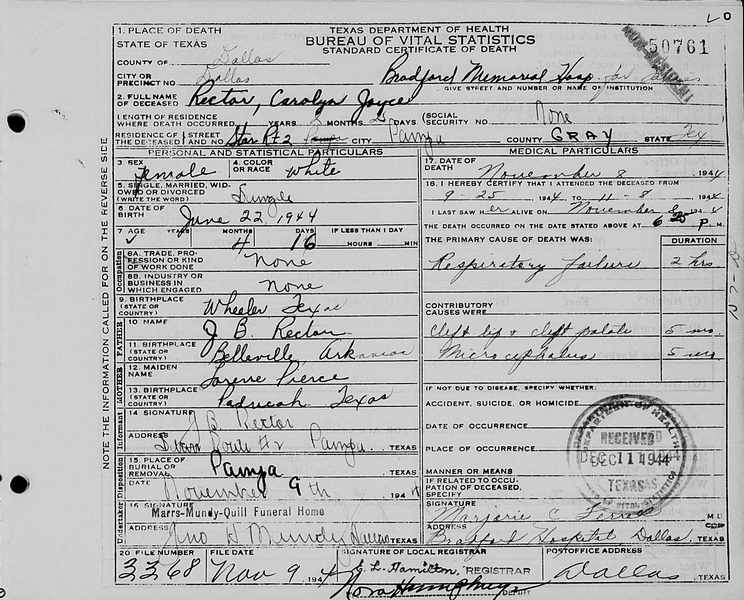 TEXAS DEPARTMENT OF HEALTH
BUREAU OF VITAL STATISTICS
STANDARD CERTIFICATE OF DEATH
50761
1. PLACE OF DEATH
STATE OF TEXAS
COUNTY OF Dallas
CITY OR PRECINCT NO. Dallas
Bradford Memorial Hosp. for
GIVE STREET AND NUMBER OR NAME OF INSTITUTION
2. FULL NAME OF DECEASED Rector, Carolyn Joyce
LENGTH OF RESIDENCE WHERE DEATH OCCURRED YEARS MONTHS DAYS
SOCIAL SECURITY NO. None
RESIDENCE OF THE DECEASED STREET AND NO. Star Rt 2 CITY Pampa COUNTY GRAY STATE Tex
NOTE THE INFORMATION CALLED FOR ON THE REVERSE SIDE
PERSONAL AND STATISTICAL PARTICULARS
3. SEX Female
4. COLOR OR RACE White
5. SINGLE, MARRIED, WIDOWED OR DIVORCED (WRITE THE WORD) Single
6. DATE OF BIRTH June 22 1944
7. AGE YEARS MONTHS 4 DAYS 16 IF LESS THAN 1 DAY HOURS MIN
Occupation
8A. TRADE, PROFESSION OR KIND OF WORK DONE None
8B. INDUSTRY OR BUSINESS IN WHICH ENGAGED None
9. BIRTHPLACE (STATE OR COUNTRY) Wheeler Texas
FATHER
10. NAME J. B. Rector
11. BIRTHPLACE (STATE OR COUNTRY) Belleville Arkansas
MOTHER
12. MAIDEN NAME Lorene Pierce
13. BIRTHPLACE (STATE OR COUNTRY) Paducah Texas
Informant
14. SIGNATURE J B Rector
ADDRESS Route #2 Pampa TEXAS
Undertaker Disposition
15. PLACE OF BURIAL OR REMOVAL Pampa TEXAS
DATE November 9th 194
16. SIGNATURE
Marrs-Mundy-Quill Funeral Home
ADDRESS Jno H Mundy Dallas TEXAS
MEDICAL PARTICULARS
17. DATE OF DEATH November 8 1944
18. I HEREBY CERTIFY THAT I ATTENDED THE DECEASED FROM
9-25 1944 TO 11-8 1944
I LAST SAW HER ALIVE ON November 8 1944
THE DEATH OCCURRED ON THE DATE STATED ABOVE AT 6 25 P. M.
THE PRIMARY CAUSE OF DEATH WAS: DURATION
Respiratory failure 2 hrs.
CONTRIBUTORY CAUSES WERE:
Cleft lip & cleft palate 5 mo
Microcephalus 5 mo
IF NOT DUE TO DISEASE, SPECIFY WHETHER:
ACCIDENT, SUICIDE, OR HOMICIDE
DATE OF OCCURRENCE
PLACE OF OCCURRENCE
MANNER OR MEANS
IF RELATED TO OCCUPATION OF DECEASED, SPECIFY
DEPARTMENT OF HEALTH
RECEIVED
DEC 11 1944
TEXAS
SIGNATURE Marjorie C M.D.
ADDRESS Bradford Hospital, Dallas, TEXAS
20 FILE NUMBER 3368
FILE DATE Nov 9 194
SIGNATURE OF LOCAL REGISTRAR
E. L. Hamilton REGISTRAR
Nora Humphreys DEPUTY
POSTOFFICE ADDRESS
Dallas TEXAS